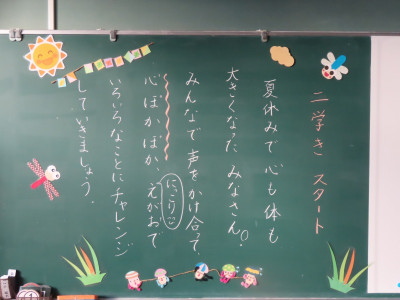 二学き スタート
夏休みで心も体も
大きくなった みなさん。
みんなで声をかけ合って
心ぽかぽか、えがおで
にっこり
いろいろなことにチャレンジ
していきましょう。